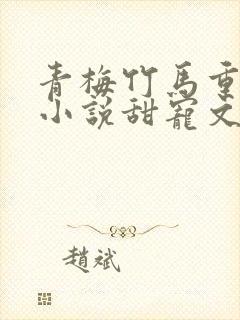 青梅竹馬重
小說甜寵文
趙斌